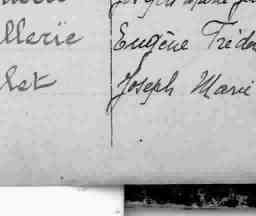 llerie Eugène Frédé
let Joseph Marie